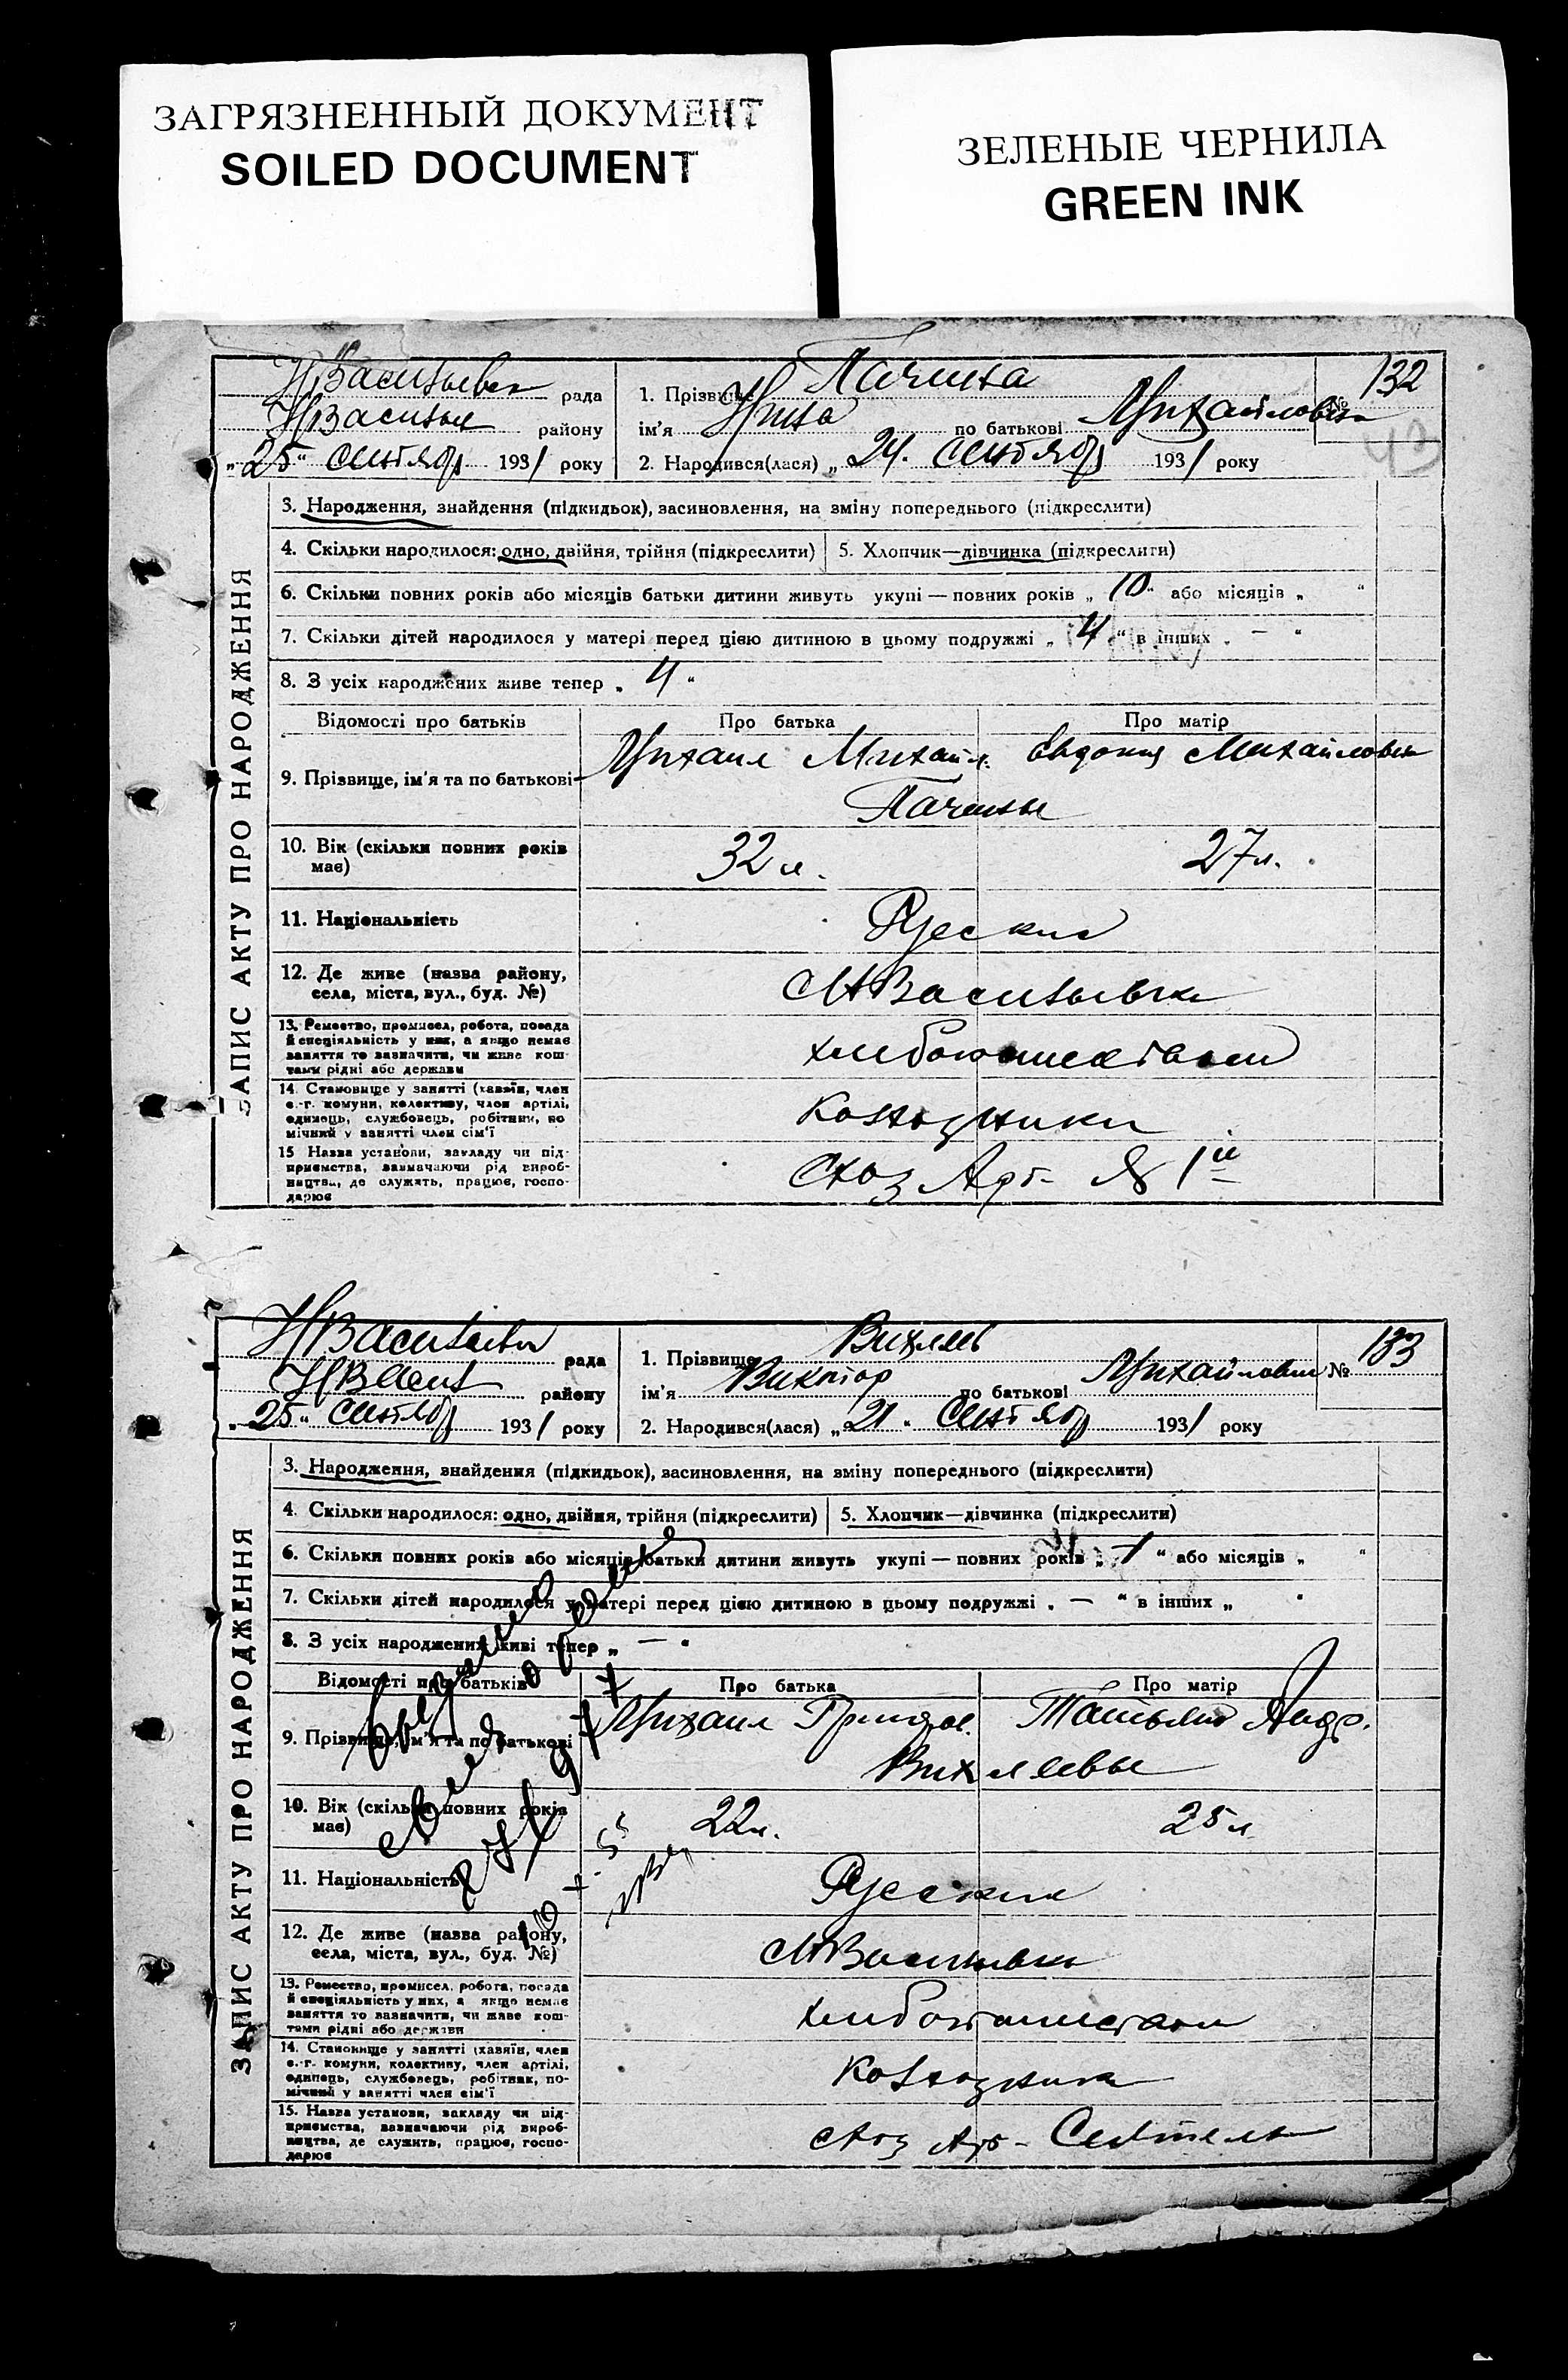 ЗАГРЯЗНЕННЫЙ ДОКУМЕНТ
SOILED DOCUMENT
ЗЕЛЕНЫЕ ЧЕРНИЛА
GREEN INK
рада
району
„25“ Сентябр 1931 року
1. Прізвище
ім'я Нина по батькові Михайловна
№ 132
2. Народився(лася) „24. Сентябр 1931 року
43
ЗАПИС АКТУ ПРО НАРОДЖЕННЯ
3. Народження, знайдення (підкидьок), засиновлення, на зміну попереднього (підкреслити)
4. Скільки народилося: одно, двійня, трійня (підкреслити)
5. Хлопчик—дівчинка (підкреслити)
6. Скільки повних років або місяців батьки дитини живуть укупі — повних років „ 10 “ або місяців „ “
7. Скільки дітей народилося у матері перед цією дитиною в цьому подружжі „ 4 “ в інших „ — “
8. З усіх народжених живе тепер „ 4 “
Відомості про батьків
Про батька
Про матір
9. Прізвище, ім'я та по батькові
Михаил Михайл.
Евдокия Михайловна
10. Вік (скільки повних років
має)
32 л.
27 л.
11. Національність
Русские
12. Де живе (назва району,
села, міста, вул., буд. №)
НВасильевка
13. Ремество, промисел, робота, посада
й спеціяльність у них, а якщо немає
заняття то зазначити, чи живе кош-
тами рідні або держави
хлебопашеством
14. Становище у занятті (хазяїн, член
с.-г. комуни, колективу, член артілі,
одинець, службовець, робітник, по
мічний у занятті член сім'ї
Колхозники
15 Назва установи, закладу чи під-
приємства, зазначаючи рід вироб-
ництва, де служить, працює, госпо-
дарює
Схоз Арт. № 1й
рада
району
„25“ Сентябр 1931 року
1. Прізвище Вихляев
ім'я Виктор по батькові Михайлович
№ 133
2. Народився(лася) „21“ Сентябр 1931 року
ЗАПИС АКТУ ПРО НАРОДЖЕННЯ
3. Народження, знайдення (підкидьок), засиновлення, на зміну попереднього (підкреслити)
4. Скільки народилося: одно, двійня, трійня (підкреслити)
5. Хлопчик—дівчинка (підкреслити)
6. Скільки повних років або місяців батьки дитини живуть укупі — повних років „ 1 “ або місяців „ “
7. Скільки дітей народилося у матері перед цією дитиною в цьому подружжі „ — “ в інших „ “
8. З усіх народжених живі тепер „ — “
Відомості про батьків
Про батька
Про матір
9. Прізвище, ім'я та по батькові
Михаил
Татьяна Андр.
Вихляевы
10. Вік (скільки повних років
має)
22 л.
25 л
11. Національність
Русские
12. Де живе (назва району,
села, міста, вул., буд. №)
НВасильевка
13. Ремество, промисел, робота, посада
й спеціяльність у них, а якщо немає
заняття то зазначити, чи живе кош-
тами рідні або держави
хлебопашеством
14. Становище у занятті (хазяїн, член
с.-г. комуни, колективу, член артілі,
одинець, службовець, робітник, по-
мічний у занятті член сім'ї
Колхозники
15. Назва установи, закладу чи під-
приємства, зазначаючи рід вироб-
ництва, де служить, працює, госпо-
дарює
Схоз Арт-